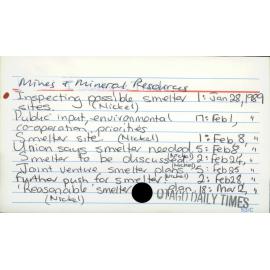 Mines & Mineral Resources
Inspecting possible smelter 1: Jan 28, 1989
sites. (Nickel)
Public input, environmental 17: Feb 1, "
co-operation priorities
Smelter site (Nickel) 1: Feb 8, "
Union says smelter needed 5: Feb 8, "
Smelter to be discussed (Nickel) 2: Feb 24, "
Joint venture, smelter plans (Nickel) 5: Feb 25 "
Further push for smelter 2: Feb 28 "
'Reasonable' smelter plan. 18: Mar 2, "
(Nickel)
OTAGO DAILY TIMES